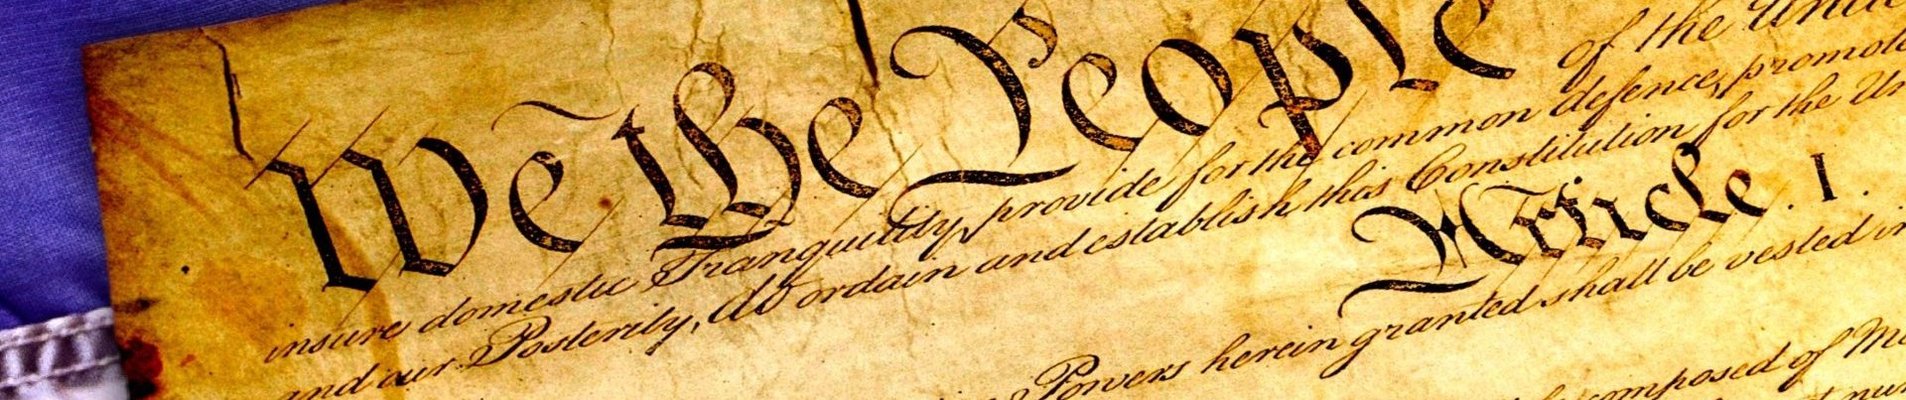 We the People of the
insure domestic Tranquility, provide for the common defence, promote
and our Posterity, do ordain and establish this Constitution for the
Article. I.
Powers herein granted shall be vested in
composed of